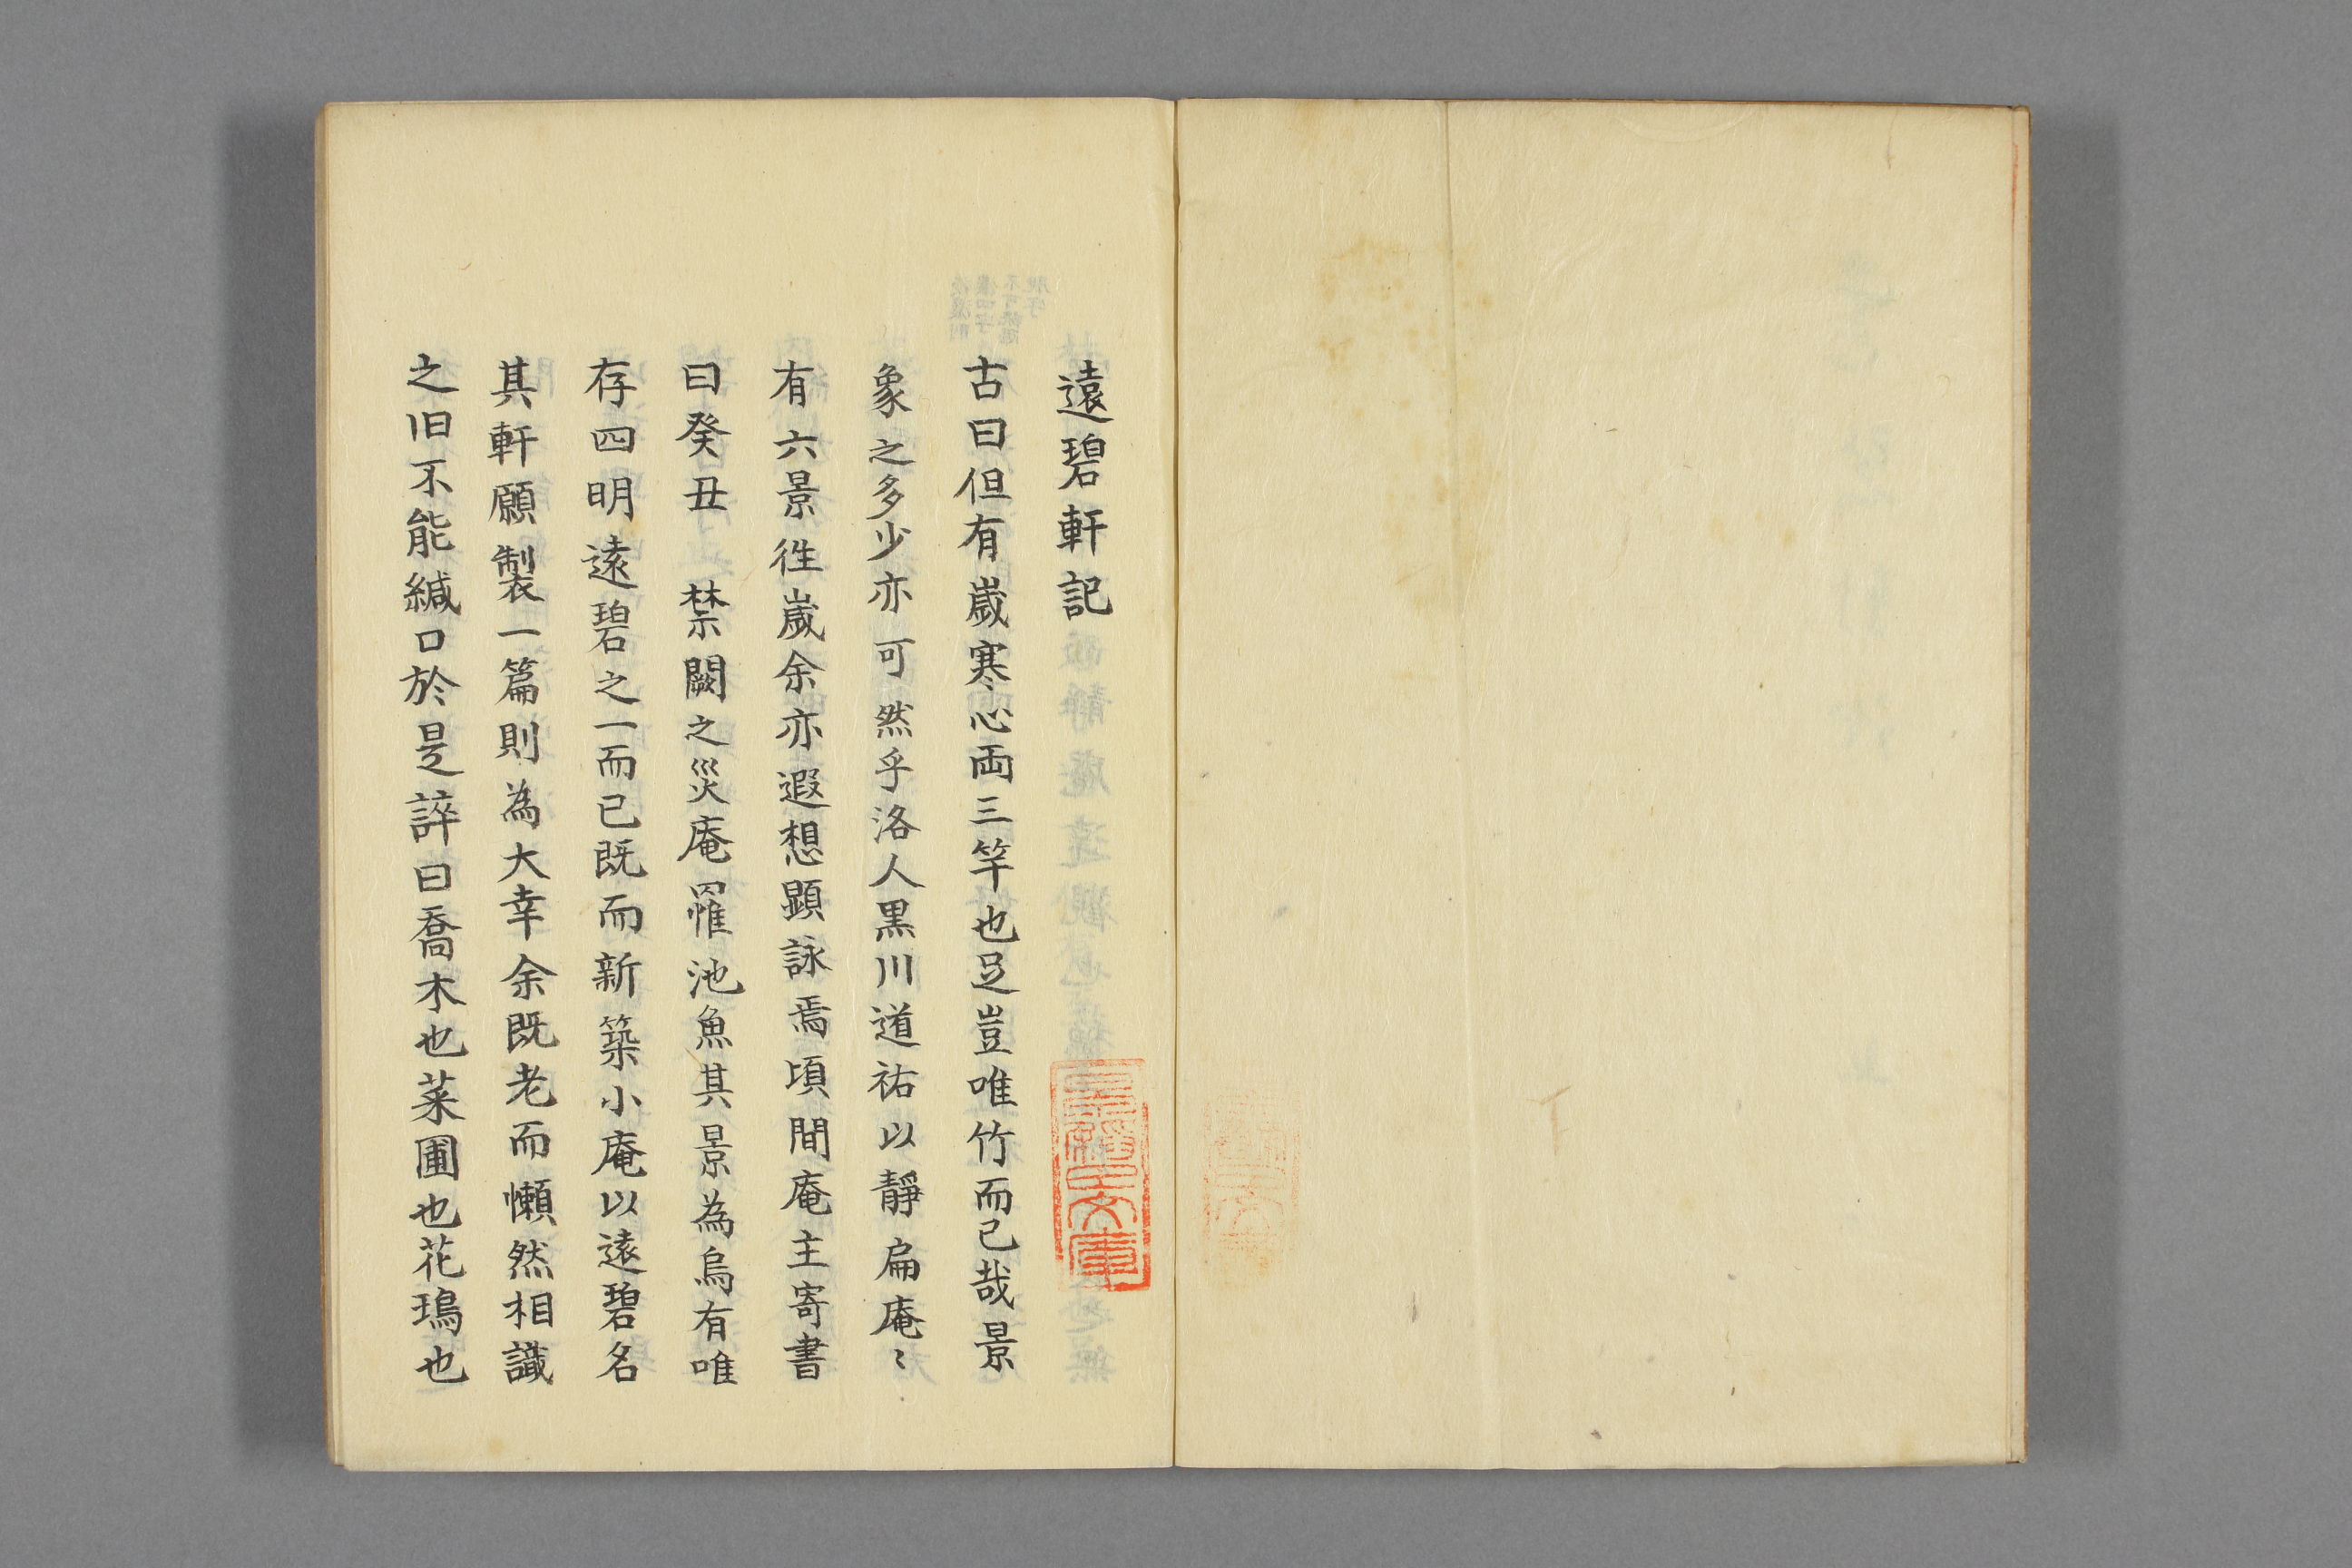 遠碧軒記
古曰但有歳寒心両三竿也足豈唯竹而已哉景
象之多少亦可然乎洛人黒川道祐以靜扁庵〻
有六景徃歳余亦遐想顕詠焉頃間庵主寄書
曰癸丑　禁闕之災庵罹池魚其景為烏有唯
存四明遠碧之一而已既而新築小庵以遠碧名
其軒願製一篇則為大幸余既老而懶然相識
之旧不能緘口於是誶曰喬木也菜圃也花塢也